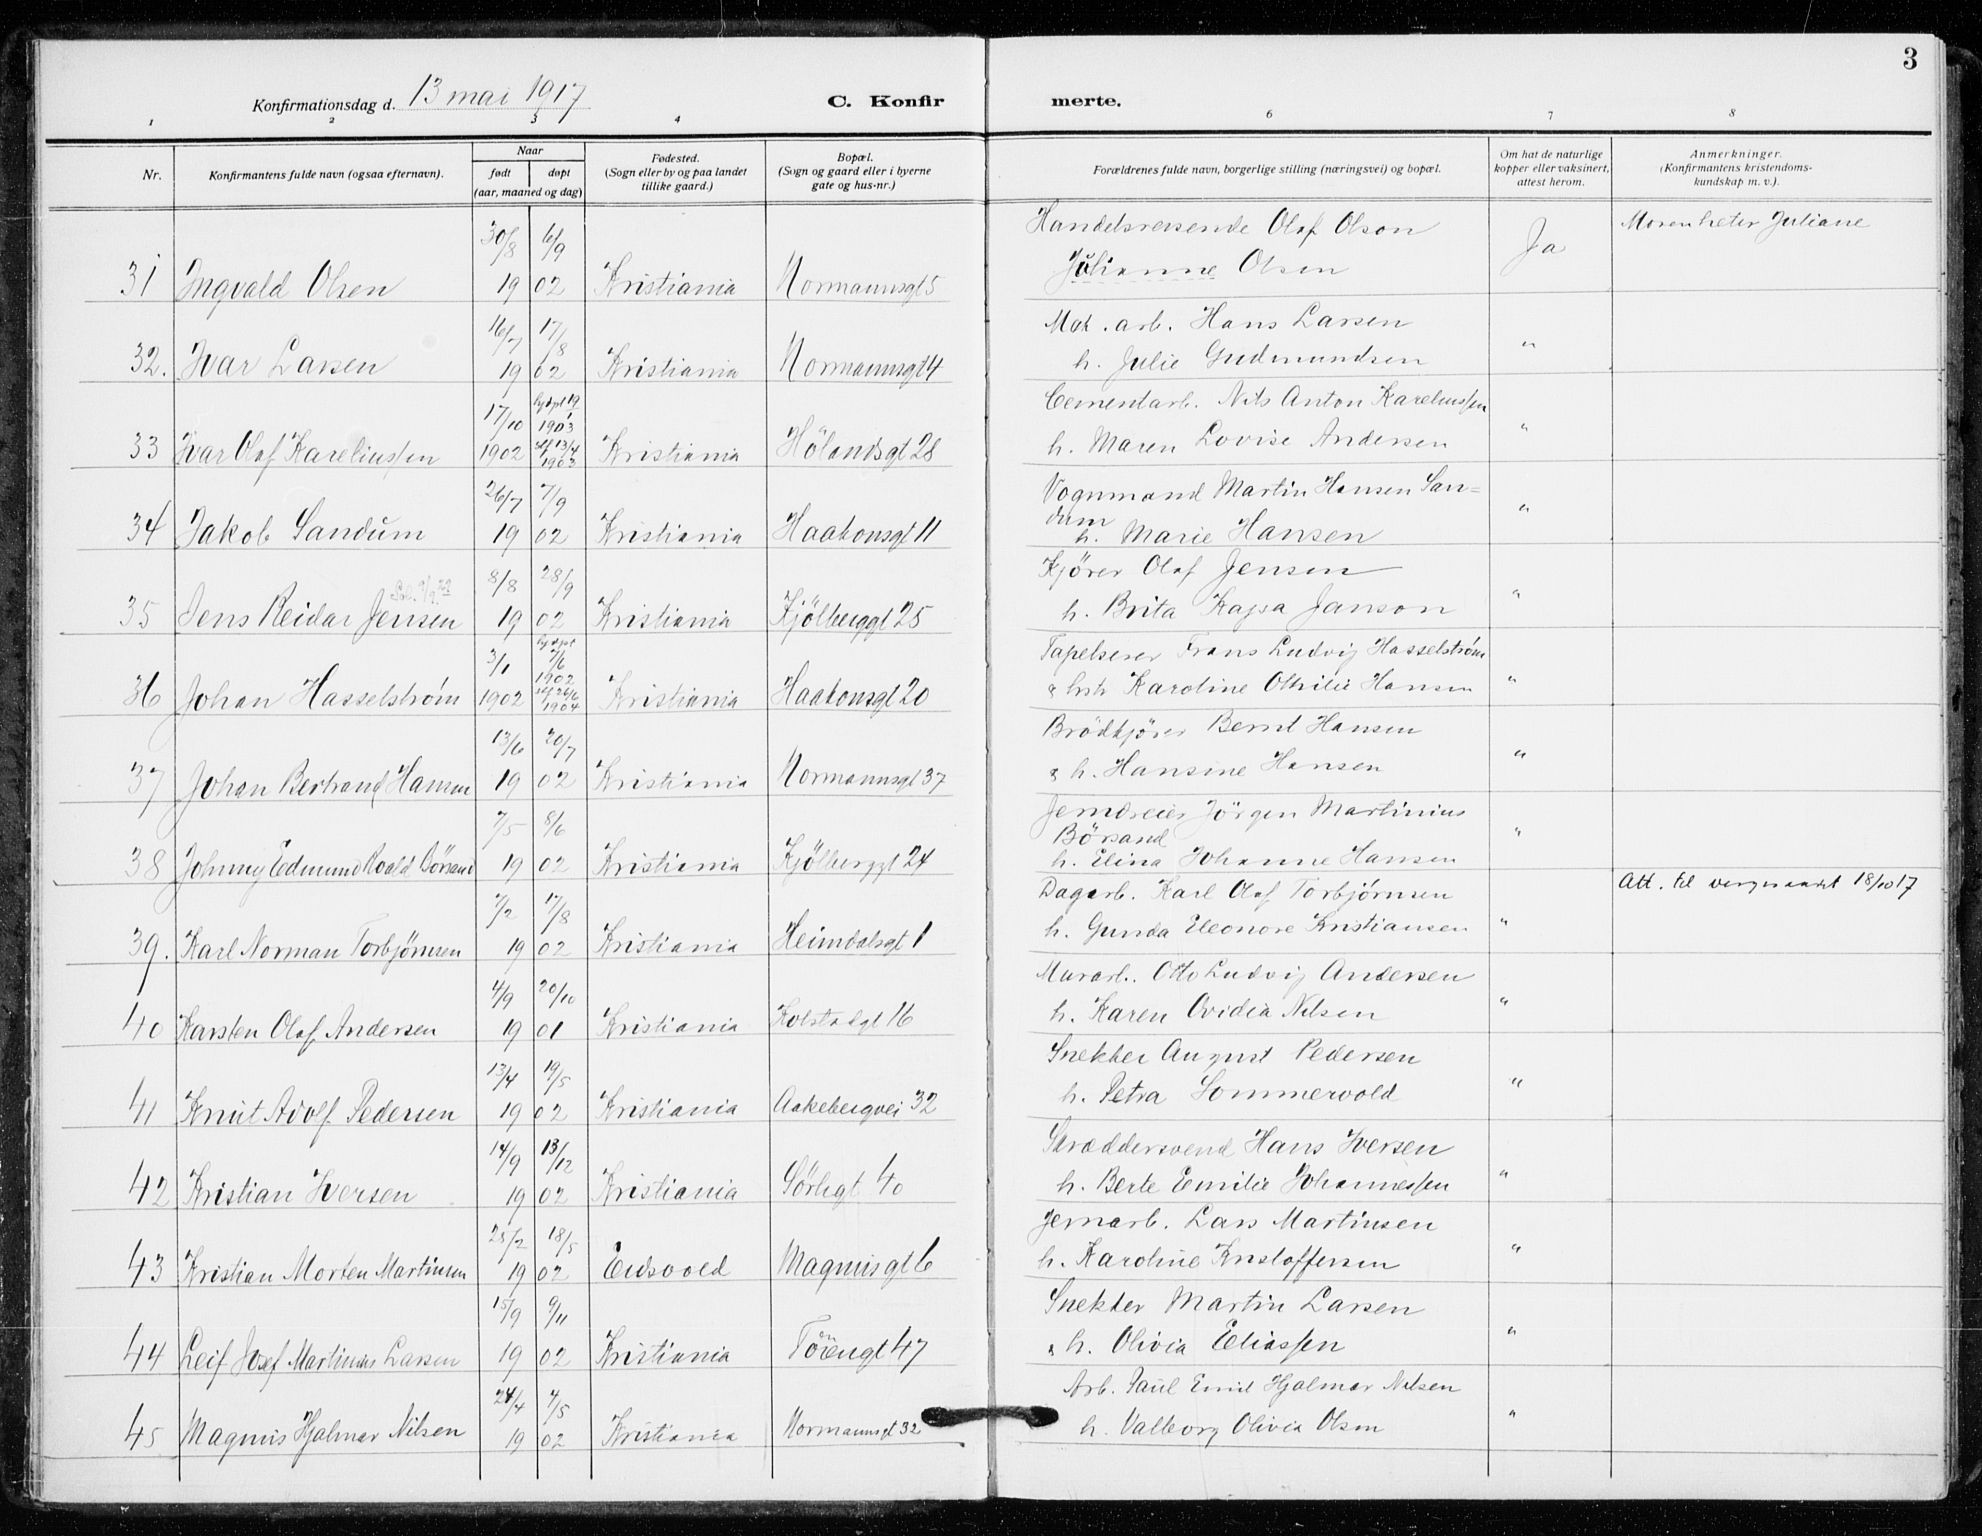 3
Konfirmationsdag d. 13 mai 1917
C. Konfir merte.
1 2 3 4 6 7 8
Nr.
Konfirmantens fulde navn (ogsaa efternavn).
Naar
født døpt
(aar, maaned og dag)
Fødested.
(Sogn eller by og paa landet
tillike gaard.)
Bopæl.
(Sogn og gaard eller i byerne
gate og hus-nr.)
Forældrenes fulde navn, borgerlige stilling (næringsvei) og bopæl.
Om hat de naturlige
kopper eller vaksinert,
attest herom.
Anmerkninger.
(Konfirmantens kristendoms-
kundskap m. v.).
30/8 6/9 Handelsreisende Olaf Olson Ja Moren heter Juliane
31 Ingvald Olsen 19 02 Kristiania Normannsgt 5 Julianne Olsen
16/7 17/8 Mek. arb. Hans Larsen
32. Ivar Larsen 19 02 Kristiania Normannsgt 4 h. Julie Gudmundsen "
17/10 hjdøpt 19/1 1903 Cementarb. Nils Anton Kareliussen
33 Ivar Olaf Kareliussen 1902 13/4 1903 Kristiania Hölandsgt 28 h. Maren Lovise Andersen "
26/7 7/9 Vognmand Martin Hansen San=
dum
34 Jakob Sandum 19 02 Kristiania Haakonsgt 11 h. Marie Hansen "
8/8 28/9 Kjörer Olaf Jensen
35 Jens Reidar Jensen 19 02 Kristiania Kjölberggt 25 h. Brita Kajsa Janson "
3/1 hjdøpt 7/6 1902 Tapetserer Frans Ludvig Hasselstrøm
36 Johan Hasselstrøm 1902 26/6 1904 Kristiania Haakonsgt 20 & hstr Karoline Othilie Hansen "
13/6 20/7 Brödkjörer Bernt Hansen
37 Johan Bertrand Hansen 19 02 Kristiania Normannsgt 37 & h. Hansine Hansen "
7/5 8/6 Jerndreier Jörgen Martinius
Börsand
38 Johnny Edmund Roald Börsand 19 02 Kristiania Kjölberggt 24 h. Elina Johanne Hansen "
7/2 17/8 Dagarb. Karl Olaf Torbjørnsen Att. til vergeraadet 18/10 17
39. Karl Norman Torbjørnsen 19 02 Kristiania Heimdalsgt 1 h. Gunda Eleonore Kristiansen "
4/9 20/10 Murarb. Otto Ludvig Andersen
40 Karsten Olaf Andersen 19 01 Kristiania Kolstadgt 16 h. Karen Ovidia Nilsen "
13/4 19/5 Snekker August Pedersen
41 Knut Adolf Pedersen 19 02 Kristiania Aakebergvei 32 h. Petra Sommervold "
14/9 13/12 Skræddersvend Hans Iversen
42 Kristian Iversen 19 02 Kristiania Sörligt 40 h. Berte Emilie Johannessen "
25/2 18/5 Jernarb. Lars Martinsen
43 Kristian Morten Martinsen 19 02 Eidsvold Magnusgt 6 h. Karoline Kristoffersen "
15/9 9/11 Snekker Martin Larsen
44 Leif Josef Martinius Larsen 19 02 Kristiania Töiengt 47 & h. Olivia Eliassen "
24/4 4/5 Arb. Paul Emil Hjalmar Nilsen
45 Magnus Hjalmar Nilsen 19 02 Kristiania Normannsgt 32 h. Valborg Olivia Olsen "